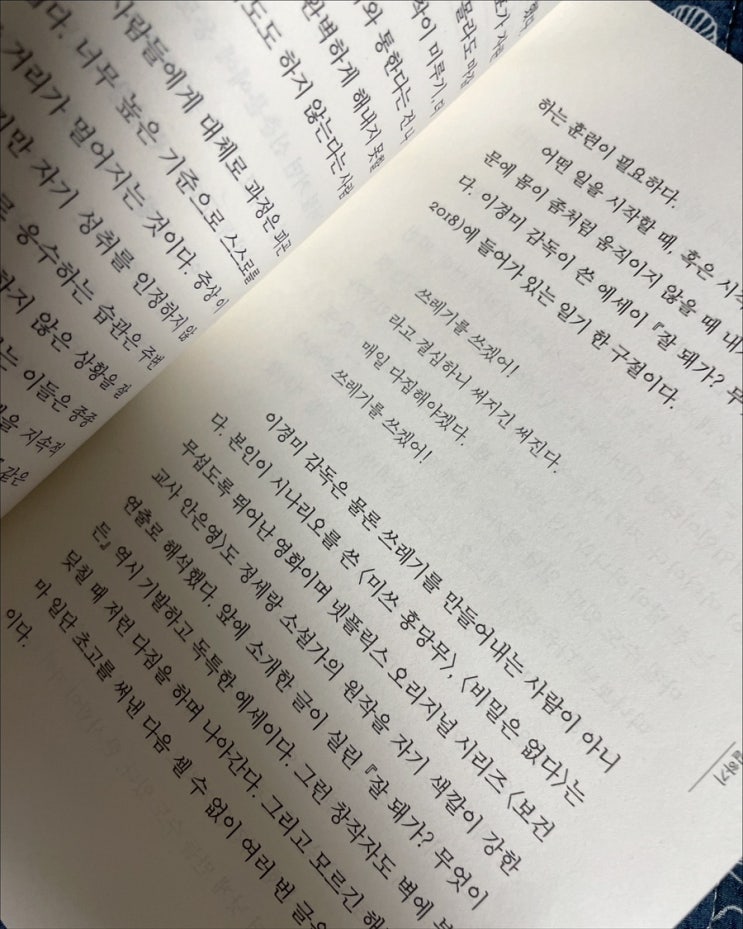 사람들에게 대체로 과정은 피곤
다. 너무 높은 기준으로 스스로를
거리가 멀어지는 것이다. 증상이
지만 자기 성취를 인정하지 않
로 응수하는 습관은 주변
하지 않은 상황을 잘
는 이들은 종종
을 지속적
같은
도도 하지 않는다는 사람
완벽하게 해내지 못할
와 통한다는 건 나
작이 미루기, 다
몰라도 마감
하는 훈련이 필요하다.
어떤 일을 시작할 때, 혹은 시작
문에 몸이 좀처럼 움직이지 않을 때 내가
다. 이경미 감독이 쓴 에세이 『잘 돼가? 무
2018)에 들어가 있는 일기 한 구절이다.
쓰레기를 쓰겠어!
라고 결심하니 써지긴 써진다.
매일 다짐해야겠다.
쓰레기를 쓰겠어!
이경미 감독은 물론 쓰레기를 만들어내는 사람이 아니
다. 본인이 시나리오를 쓴 〈미쓰 홍당무〉, 〈비밀은 없다〉는
무섭도록 뛰어난 영화이며 넷플릭스 오리지널 시리즈 〈보건
교사 안은영〉도 정세랑 소설가의 원작을 자기 색깔이 강한
연출로 해석했다. 앞에 소개한 글이 실린 『잘 돼가? 무엇이
든』 역시 기발하고 독특한 에세이다. 그런 창작자도 벽에 부
딪칠 때 저런 다짐을 하며 나아간다. 그리고 모르긴 해
마 일단 초고를 써낸 다음 셀 수 없이 여러 번 글을
이다.